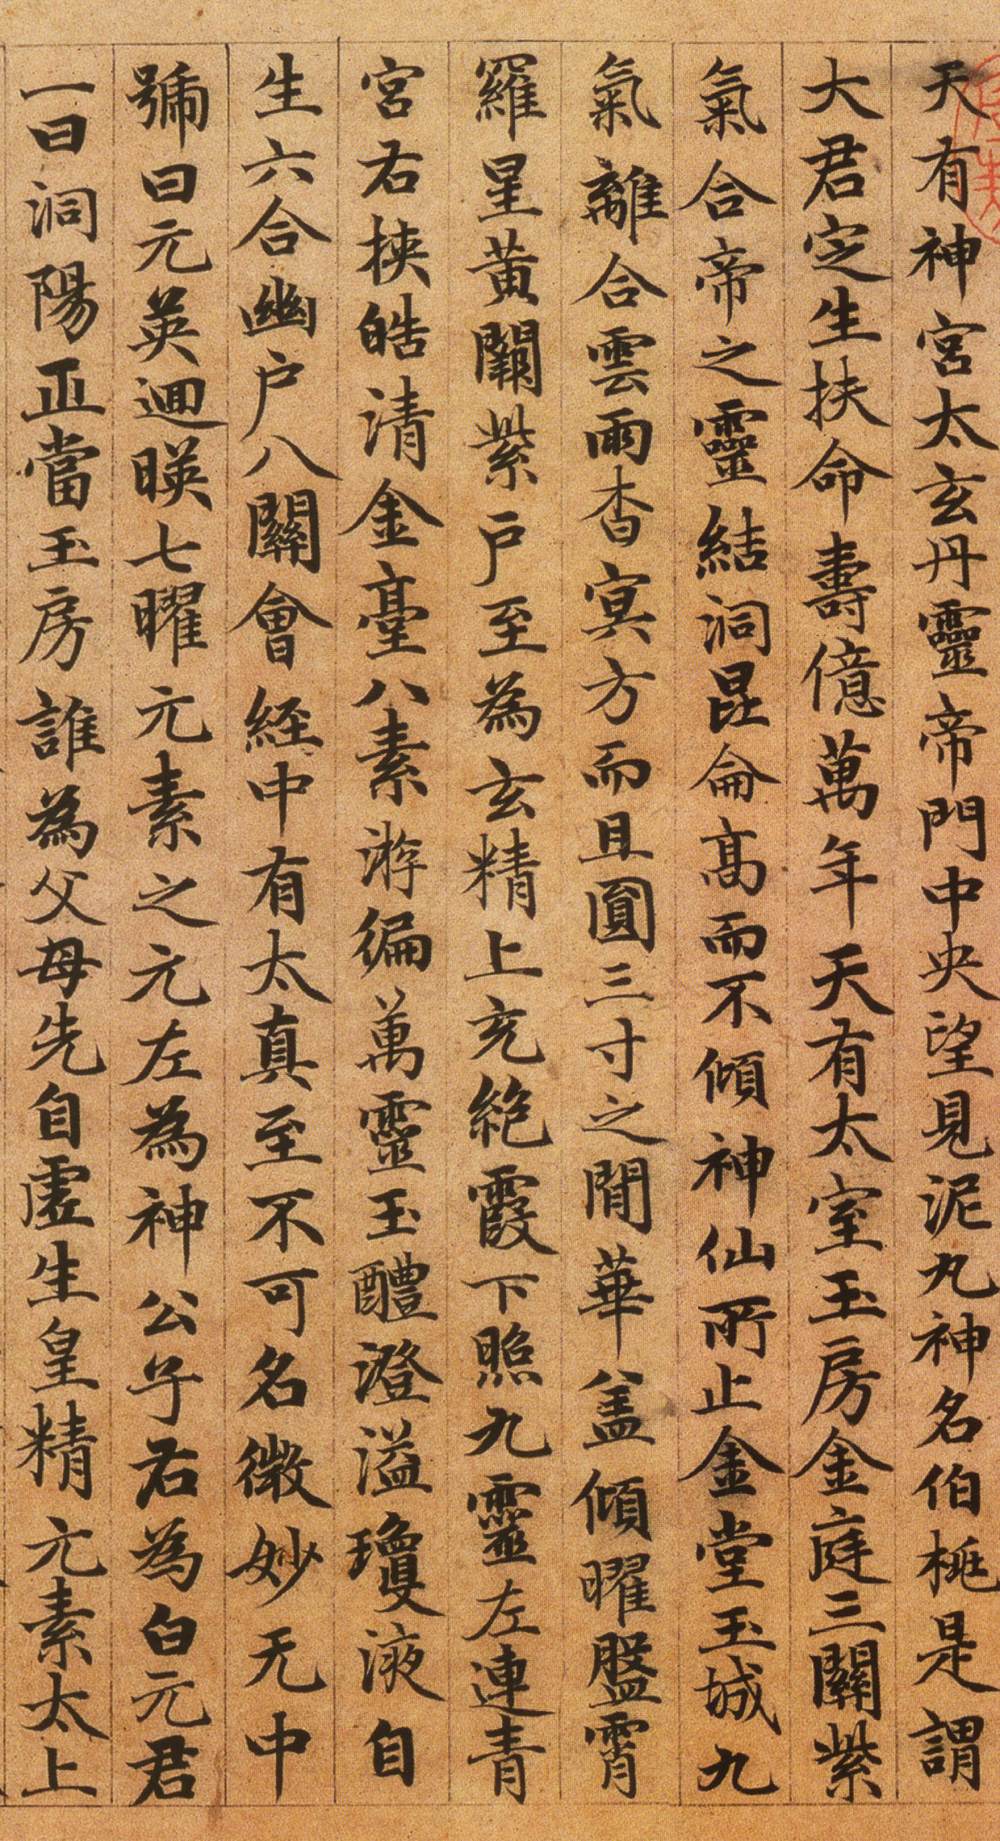 天有神宮太玄丹靈帝門中央望見泥丸神名伯桃是謂
大君定生扶命壽億萬年天有太室玉房金庭三關紫
氣合帝之靈結洞昆侖高而不傾神仙所止金堂玉城九
氣離合雲雨杳冥方而且圓三寸之閒華蓋傾曜盤霄
羅星黃闕紫戶至為玄精上充絕霞下照九靈左連青
宮右挾皓清金臺八素游徧萬靈玉醴澄溢瓊液自
生六合幽戶八關會經中有太真至不可名微妙无中
號曰元英迴暎七曜元素之元左為神公子右為白元君
一曰洞陽正當玉房誰為父母先自虛生皇精元素太上